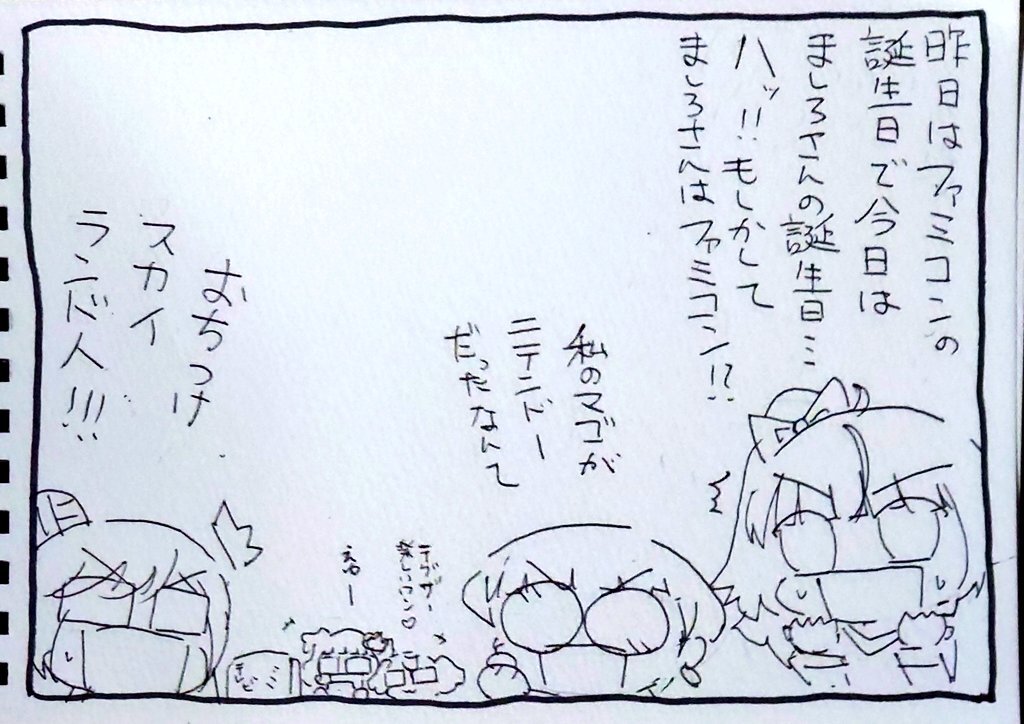 昨日はファミコンの
誕生日で今日は
ましろさんの誕生日…
ハッ!!もしかして
ましろさんはファミコン!?
私のマゴが
ニテンドー
だったなんて
デザザー
楽しいワン♡
えるー
おちつけ
スカイ
ランド人!!!